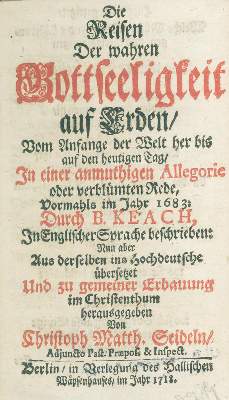 Die
Reisen
Der wahren
Gottseeligkeit
auf Erden/
Vom Anfange der Welt her bis
auf den heutigen Tag/
In einer anmuthigen Allegorie
oder verblümten Rede,
Vormahls im Jahr 1683:
Durch B. KEACH,
In Englischer Sprache beschrieben:
Nun aber
Aus derselben ins Hochdeutsche
übersetzet
Und zu gemeiner Erbauung
im Christenthum
herausgegeben
Von
Christoph Matth. Seideln/
Adjuncto Past. Præpos. & Inspect.
Berlin/ in Verlegung des Hallischen
Wäysenhauses, im Jahr 1718.